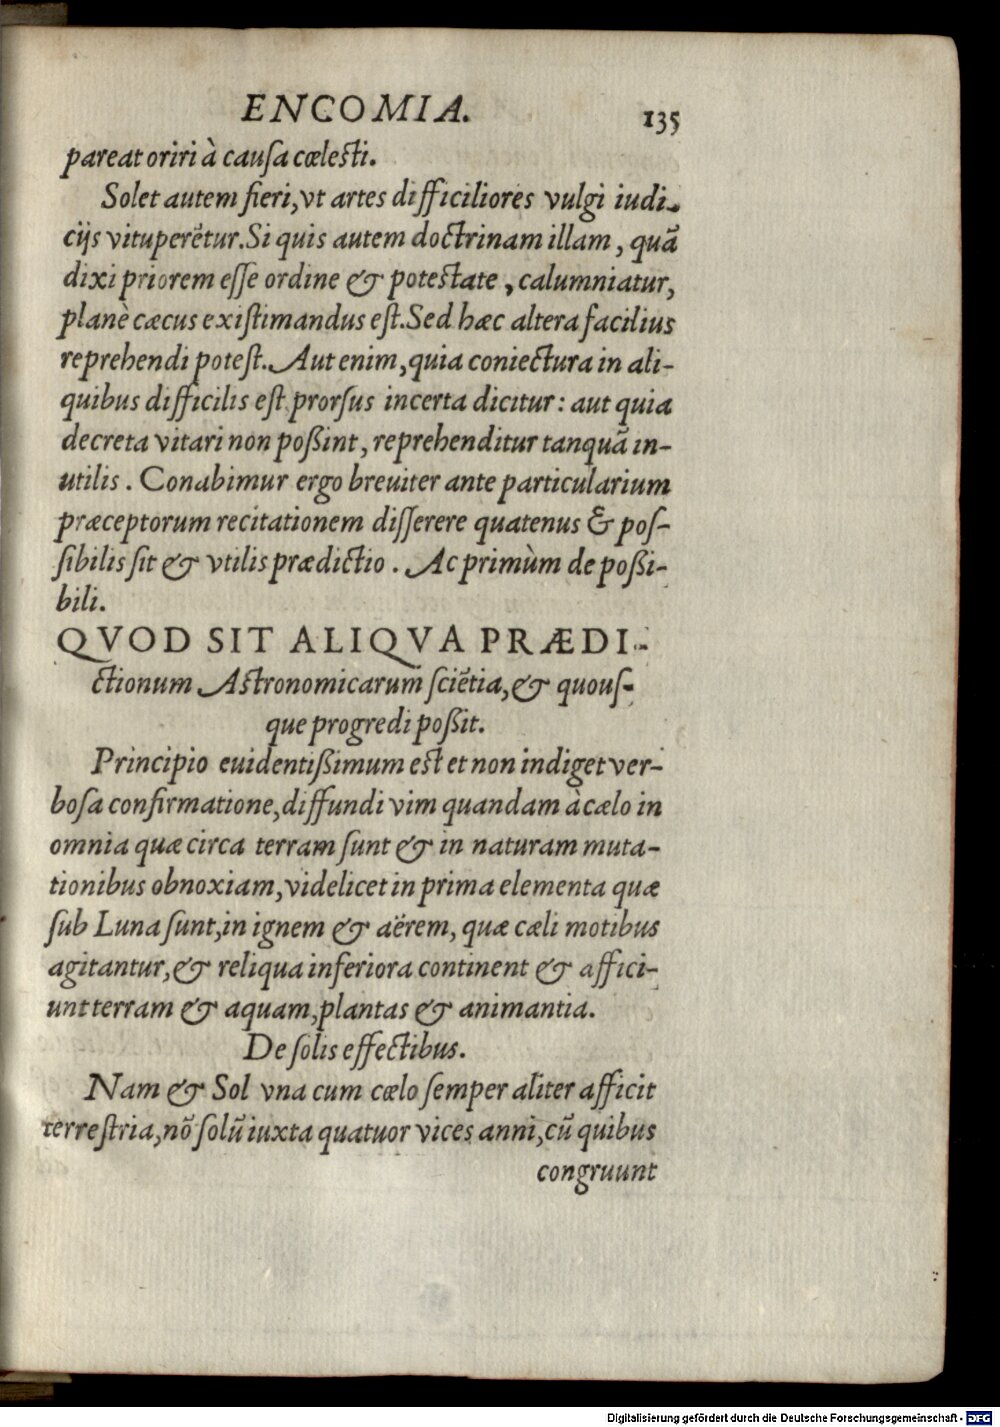 ENCOMIA. 135
pareat oriri à causa cœlesti.
Solet autem fieri, vt artes difficiliores vulgi iudi-
cijs vituperētur. Si quis autem doctrinam illam, quā
dixi priorem esse ordine & potestate, calumniatur,
planè cæcus existimandus est. Sed hæc altera facilius
reprehendi potest. Aut enim, quia coniectura in ali-
quibus difficilis est prorsus incerta dicitur: aut quia
decreta vitari non poßint, reprehenditur tanquā in-
utilis. Conabimur ergo breuiter ante particularium
præceptorum recitationem disserere quatenus & pos-
sibilis sit & vtilis prædictio. Ac primùm de poßi-
bili.
QVOD SIT ALIQVA PRÆDI-
ctionum Astronomicarum sciētia, & quous-
que progredi poßit.
Principio euidentißimum est et non indiget ver-
bosa confirmatione, diffundi vim quandam à cælo in
omnia quæ circa terram sunt & in naturam muta-
tionibus obnoxiam, videlicet in prima elementa quæ
sub Luna sunt, in ignem & aërem, quæ cæli motibus
agitantur, & reliqua inferiora continent & affici-
unt terram & aquam, plantas & animantia.
De solis effectibus.
Nam & Sol vna cum cœlo semper aliter afficit
terrestria, nō solū iuxta quatuor vices anni, cū quibus
congruunt
Digitalisierung gefördert durch die Deutsche Forschungsgemeinschaft - DFG